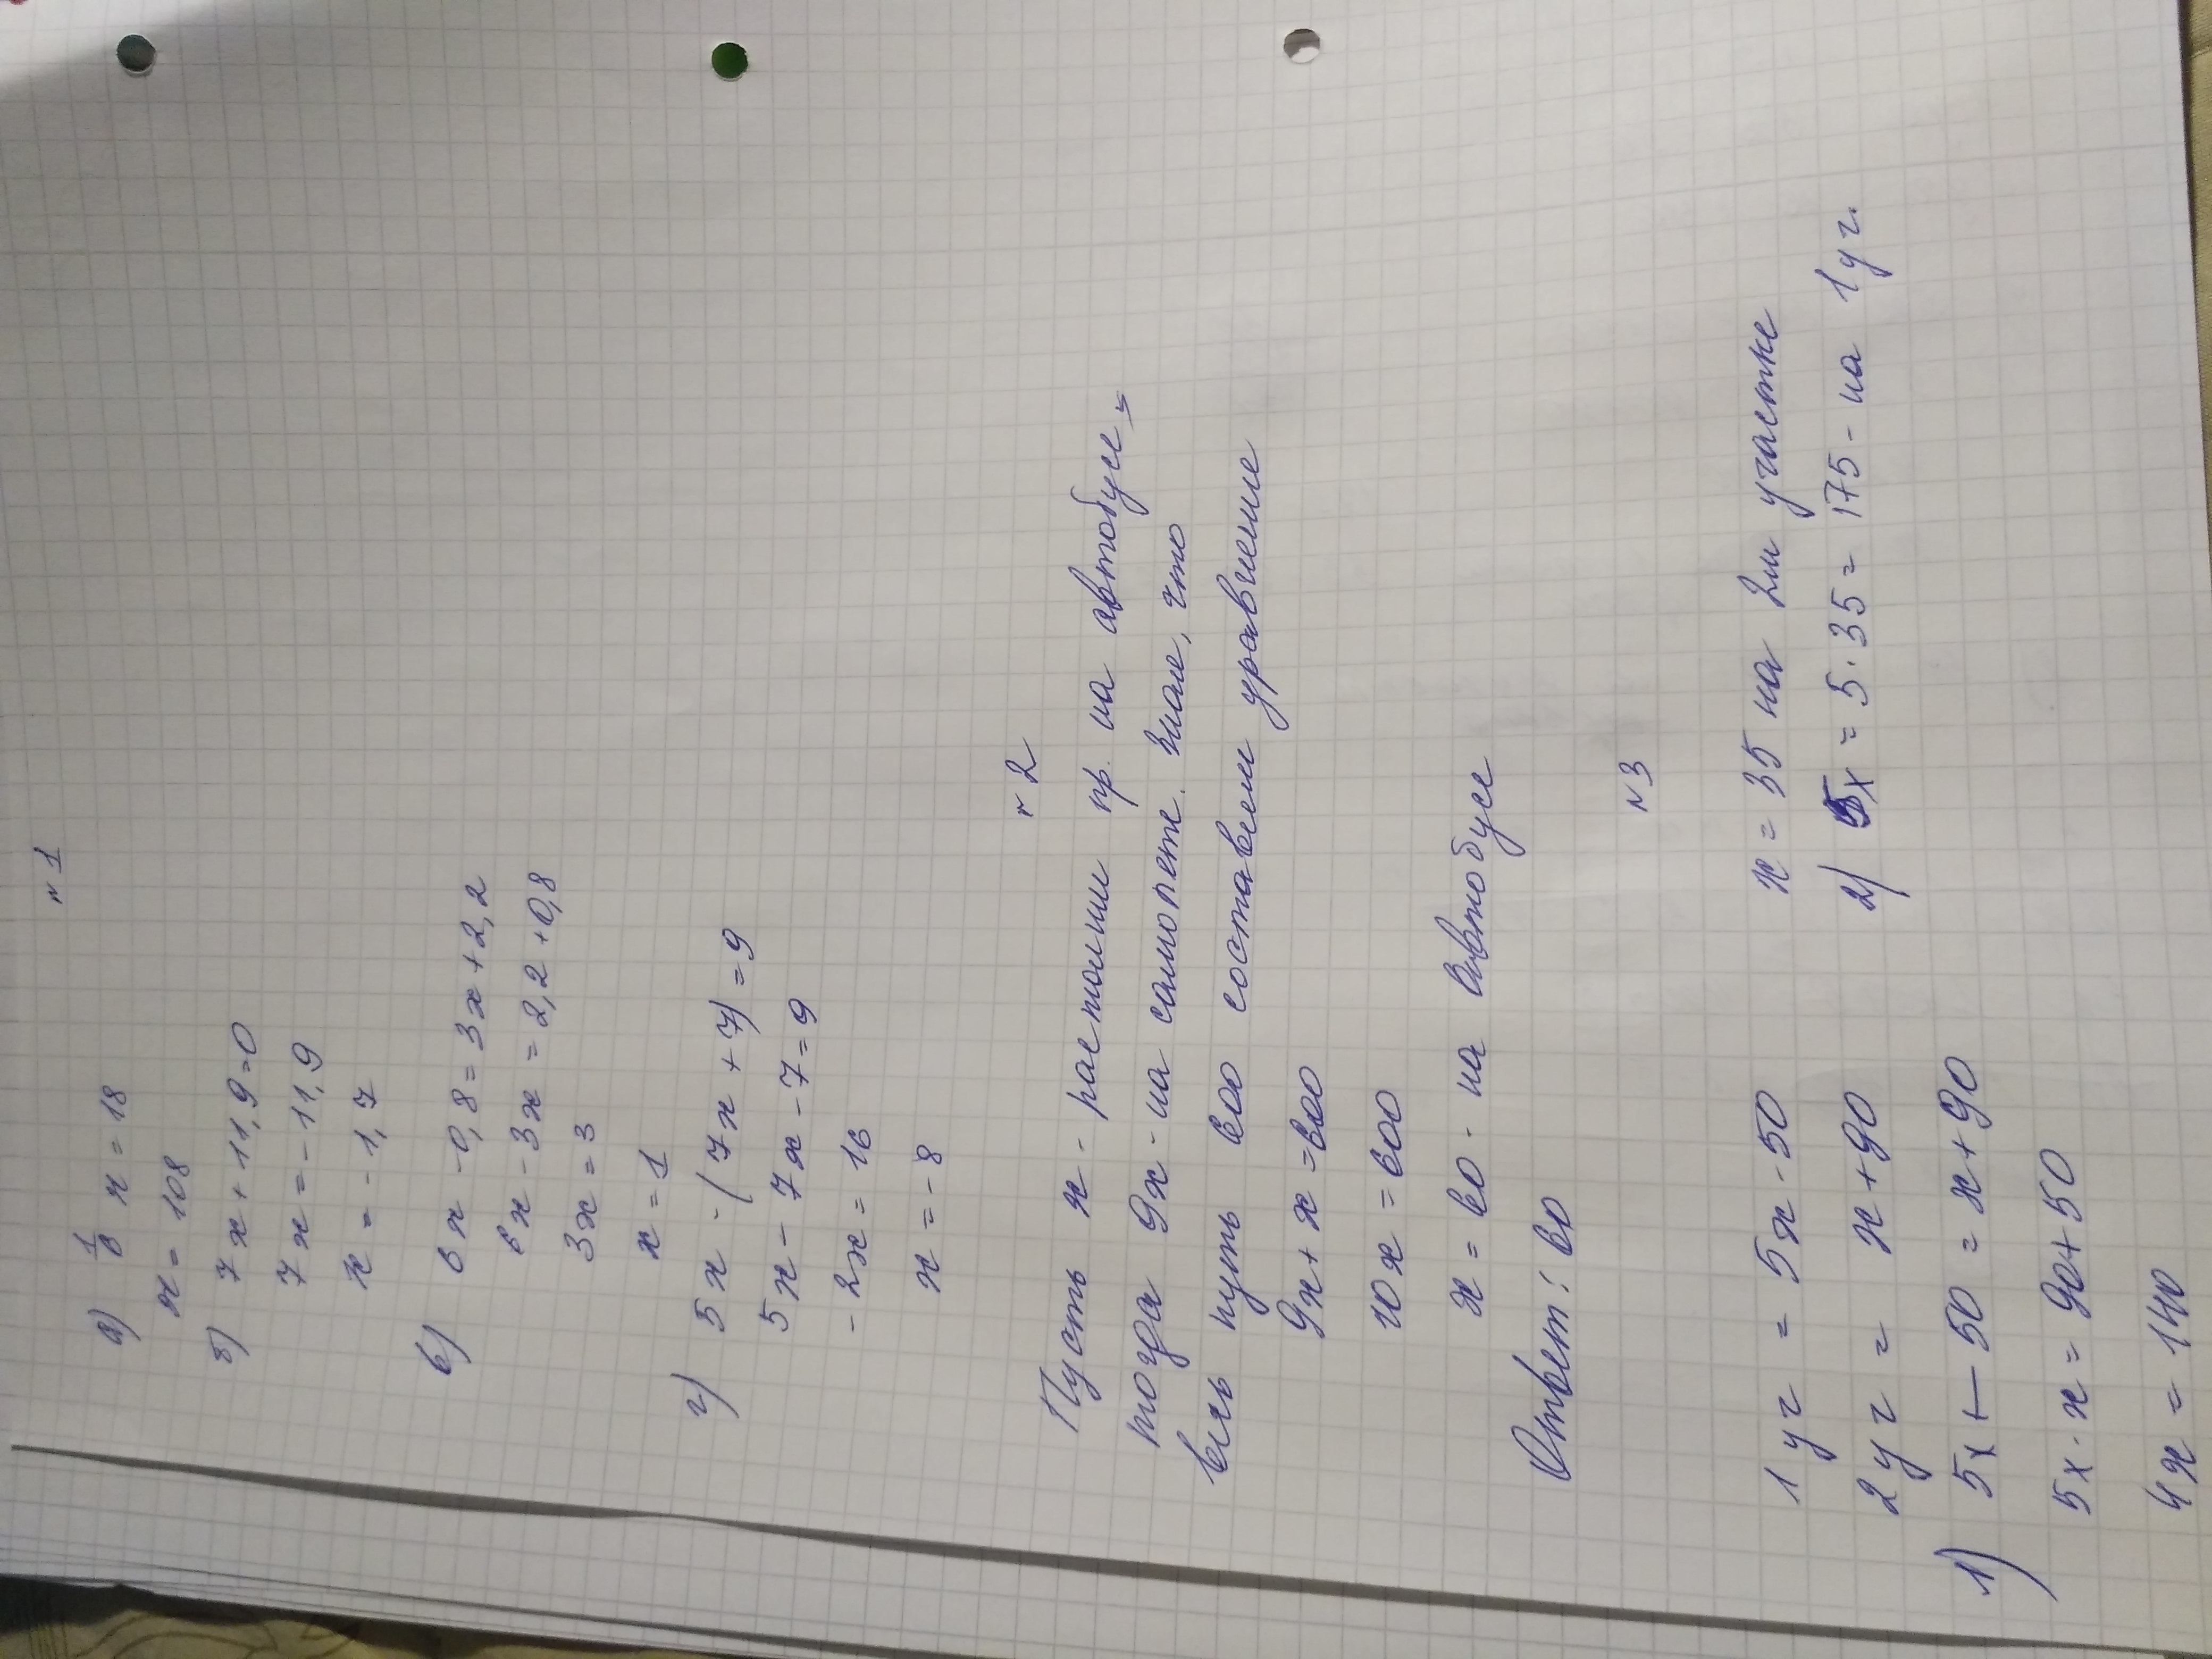 №1
а) 1/6 x = 18
x = 108
б) 7x + 11,9 = 0
7x = - 11,9
x = - 1,7
в) 6x - 0,8 = 3x + 2,2
6x - 3x = 2,2 + 0,8
3x = 3
x = 1
г) 5x - (7x + 7) = 9
5x - 7x - 7 = 9
- 2x = 16
x = - 8
№2
Пусть x - растоянии пр. на автобусе,
тогда 9x - на самолете. Зная, что
весь путь 600 составвим уравнение
9x + x = 600
10x = 600
x = 60 - на автобусе
Ответ: 60
№3
1 уч = 5x - 50
2 уч = x + 90
1) 5x - 50 = x + 90
5x - x = 90 + 50
4x = 140
x = 35 на 2м участке
2) 5x = 5 · 35 = 175 - на 1 уч.